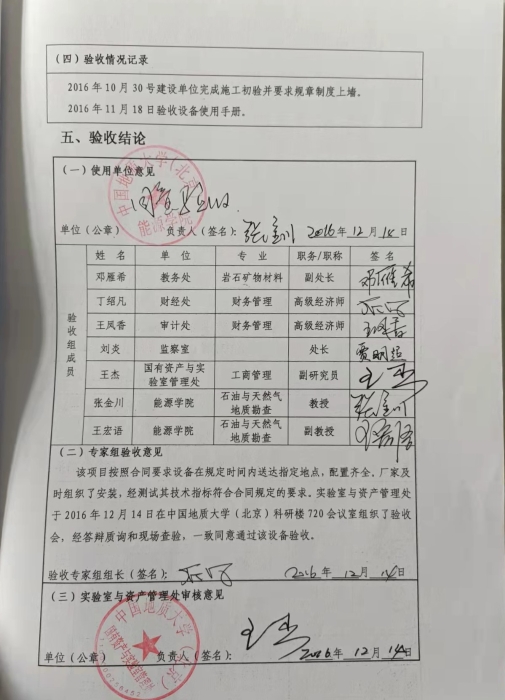 (四)验收情况记录
2016年10月30号建设单位完成施工初验并要求规章制度上墙。
2016年11月18日验收设备使用手册。
五、验收结论
(一)使用单位意见
中国地质大学(北京)
能源学院
同意验收
单位(公章) 负责人(签名): 张金川 2016年12月14日
验收组成员
姓 名 单 位 专 业 职务/职称 签 名
邓雁希 教务处 岩石矿物材料 副处长 邓雁希
丁绍凡 财经处 财务管理 高级经济师
王凤香 审计处 财务管理 高级经济师 王凤香
刘炎 监察室 处长 贾明超
王杰 国有资产与实验室管理处 工商管理 副研究员 王杰
张金川 能源学院 石油与天然气地质勘查 教授 张金川
王宏语 能源学院 石油与天然气地质勘查 副教授 王宏语
(二)专家组验收意见
该项目按照合同要求设备在规定时间内送达指定地点,配置齐全。厂家及
时组织了安装,经测试其技术指标符合合同规定的要求。实验室与资产管理处
于2016年12月14日在中国地质大学(北京)科研楼720会议室组织了验收
会,经答辩质询和现场查验,一致同意通过该设备验收。
验收专家组组长(签名): 2016年12月14日
(三)实验室与资产管理处审核意见
中国地质大学(北京)
单位(公章) 负责人(签名): 王杰 2016年12月14日